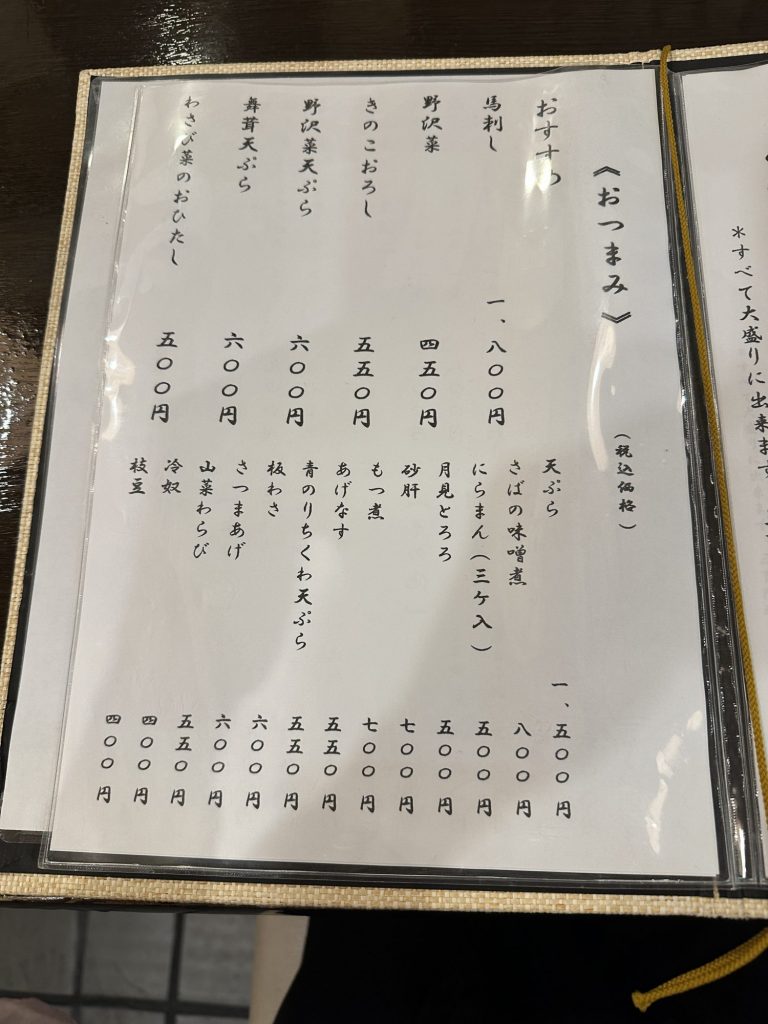 ＊すべて大盛りに出来ます
《おつまみ》 （税込価格）
おすすめ
馬刺し 一、八〇〇円
野沢菜 四五〇円
きのこおろし 五五〇円
野沢菜天ぷら 六〇〇円
舞茸天ぷら 六〇〇円
わさび菜のおひたし 五〇〇円
天ぷら 一、五〇〇円
さばの味噌煮 八〇〇円
にらまん（三ケ入） 五〇〇円
月見とろろ 五〇〇円
砂肝 七〇〇円
もつ煮 七〇〇円
あげなす 五五〇円
青のりちくわ天ぷら 五五〇円
板わさ 六〇〇円
さつまあげ 六〇〇円
山菜わらび 五五〇円
冷奴 四〇〇円
枝豆 四〇〇円